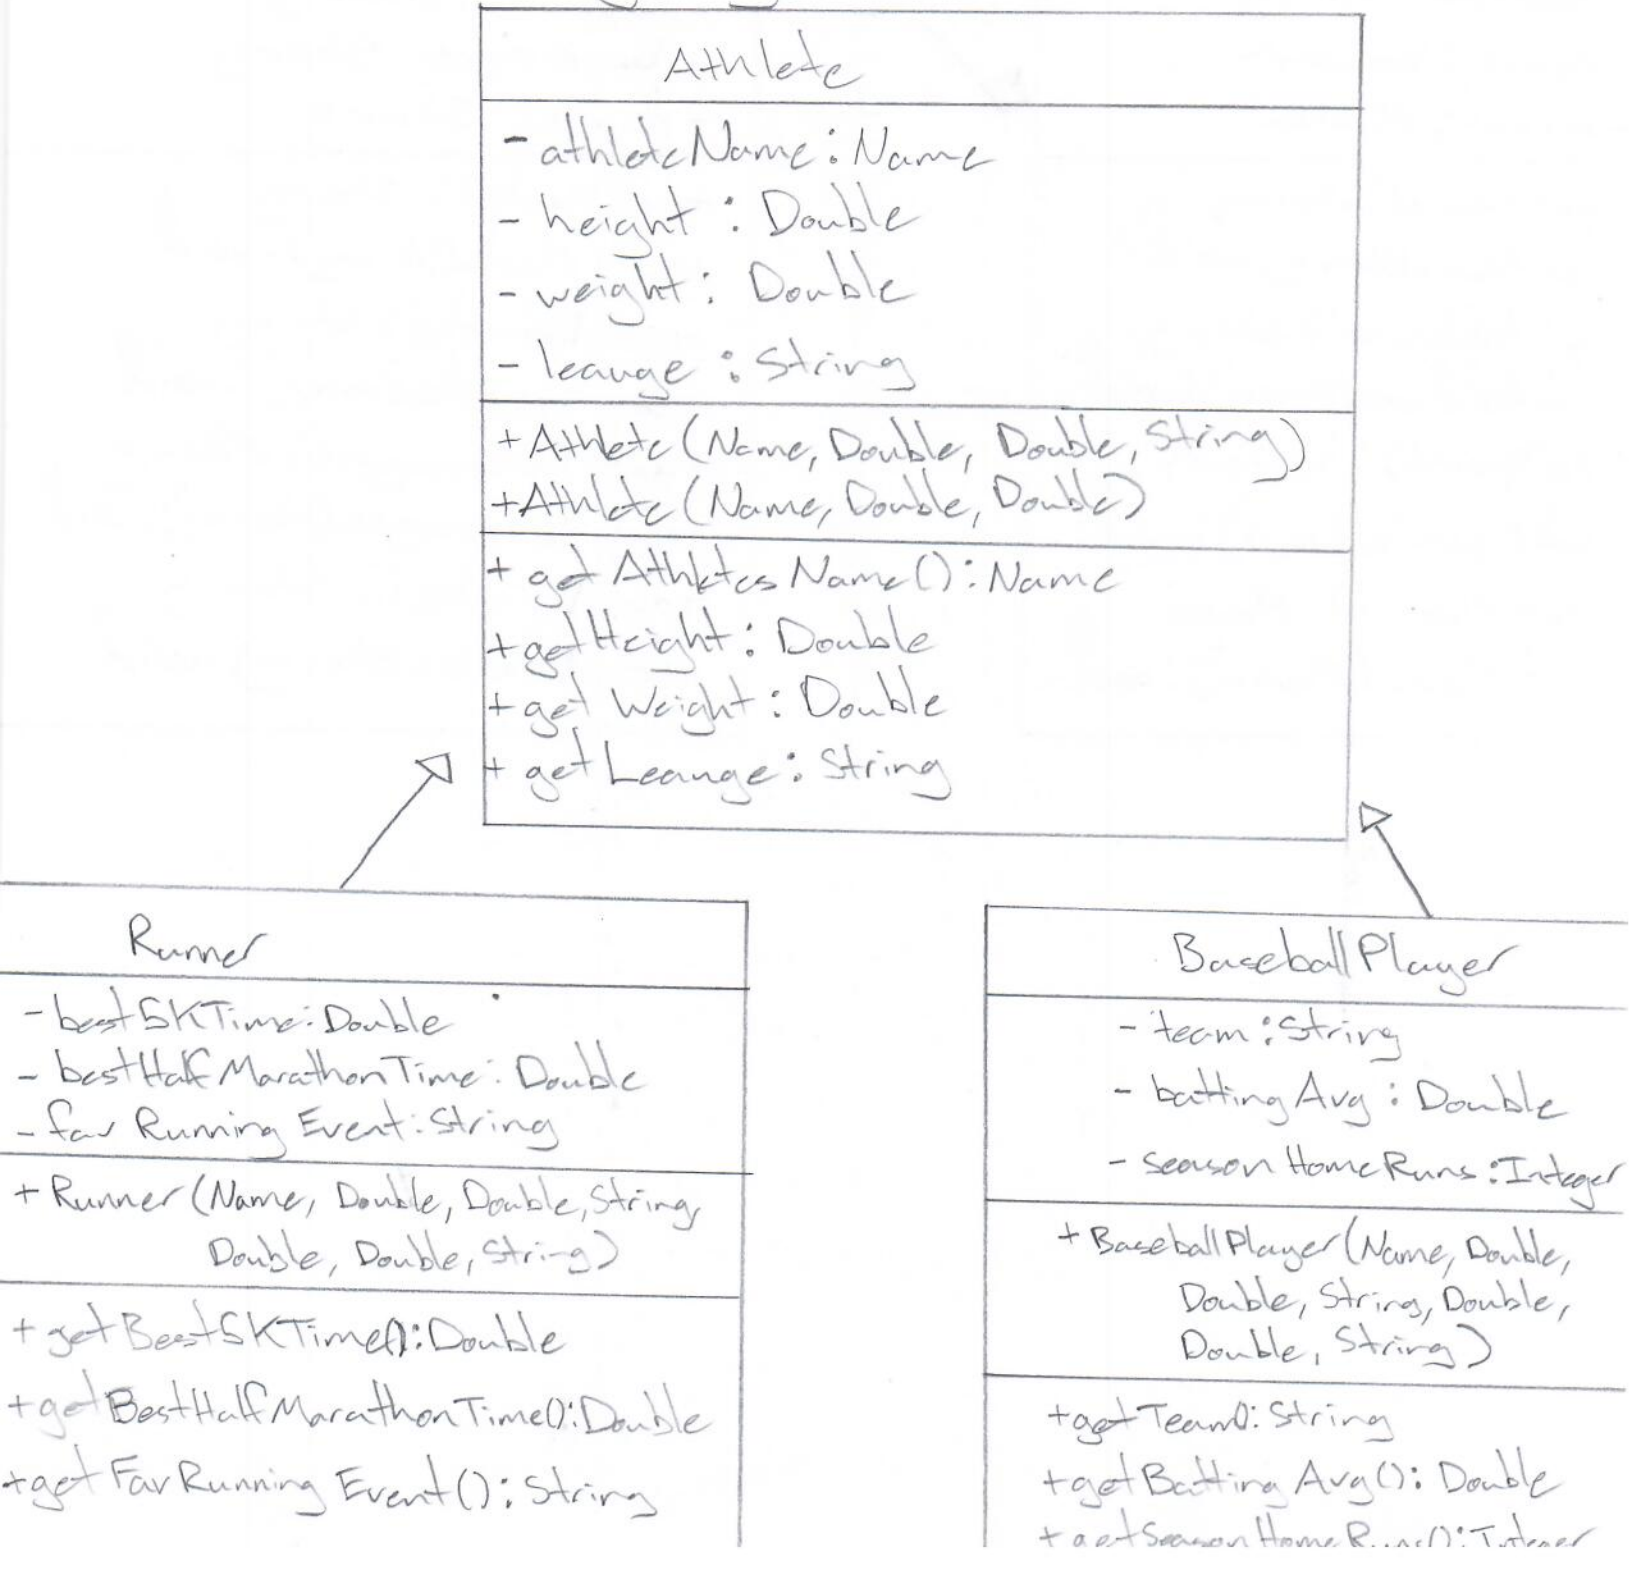 Athlete
- athleteName : Name
- height : Double
- weight : Double
- leauge : String
+ Athlete (Name, Double, Double, String)
+ Athlete (Name, Double, Double)
+ getAthletesName() : Name
+ getHeight : Double
+ getWeight : Double
+ getLeauge : String
Runner
- best5KTime : Double
- bestHalfMarathonTime : Double
- favRunningEvent : String
+ Runner (Name, Double, Double, String,
Double, Double, String)
+ getBest5KTime() : Double
+ getBestHalfMarathonTime() : Double
+ getFavRunningEvent() : String
BaseballPlayer
- team : String
- battingAvg : Double
- seasonHomeRuns : Integer
+ BaseballPlayer (Name, Double,
Double, String, Double,
Double, String)
+ getTeam() : String
+ getBattingAvg() : Double
+ getSeasonHomeRuns() : Integer